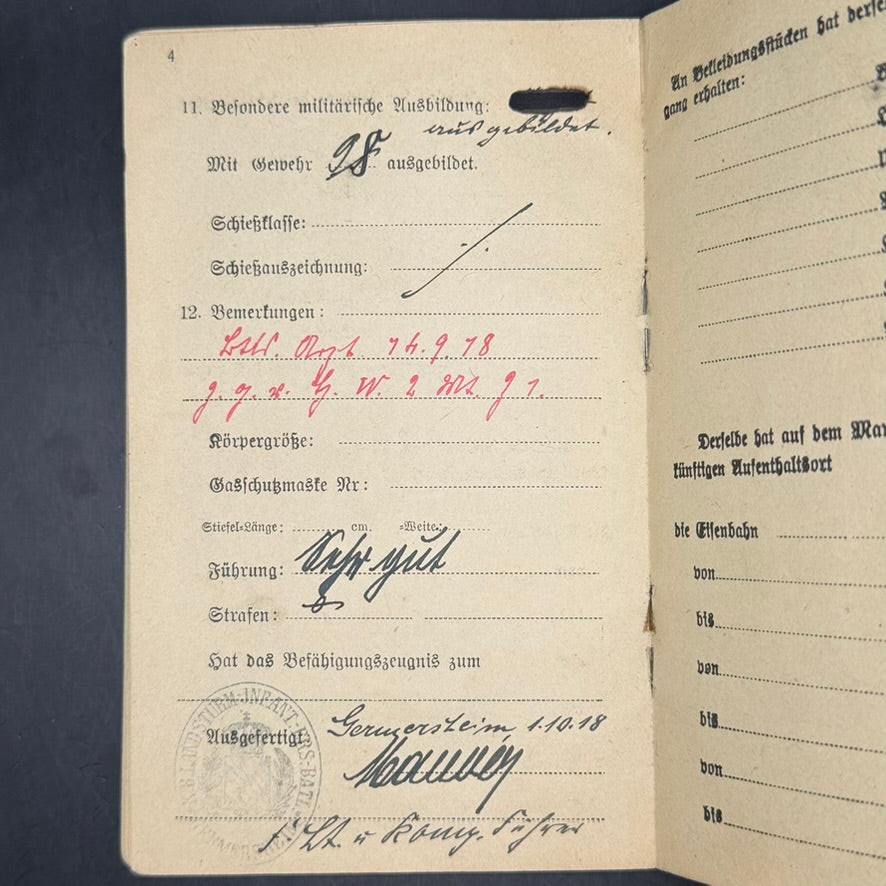 4
11. Besondere militärische Ausbildung:
ausgebildet.
Mit Gewehr 98 ausgebildet.
Schießklasse:
Schießauszeichnung:
12. Bemerkungen:
Btls. Arzt 14.9.18
g. g. v. H. W. 2
Körpergröße:
Gasschutzmaske Nr:
Stiefel-Länge: cm. -Weite:
Führung: Sehr gut
Strafen:
Hat das Befähigungszeugnis zum
Ausgefertigt: Germersheim, 1.10.18
Lt. u Komp. Führer
LANDSTURM-INFANT.-ERS.-BATL.
An Bekleidungsstücken hat
gang erhalten:
Derselbe hat auf dem
künftigen Aufenthaltsort
die Eisenbahn
von
bis
von
bis
von
bis